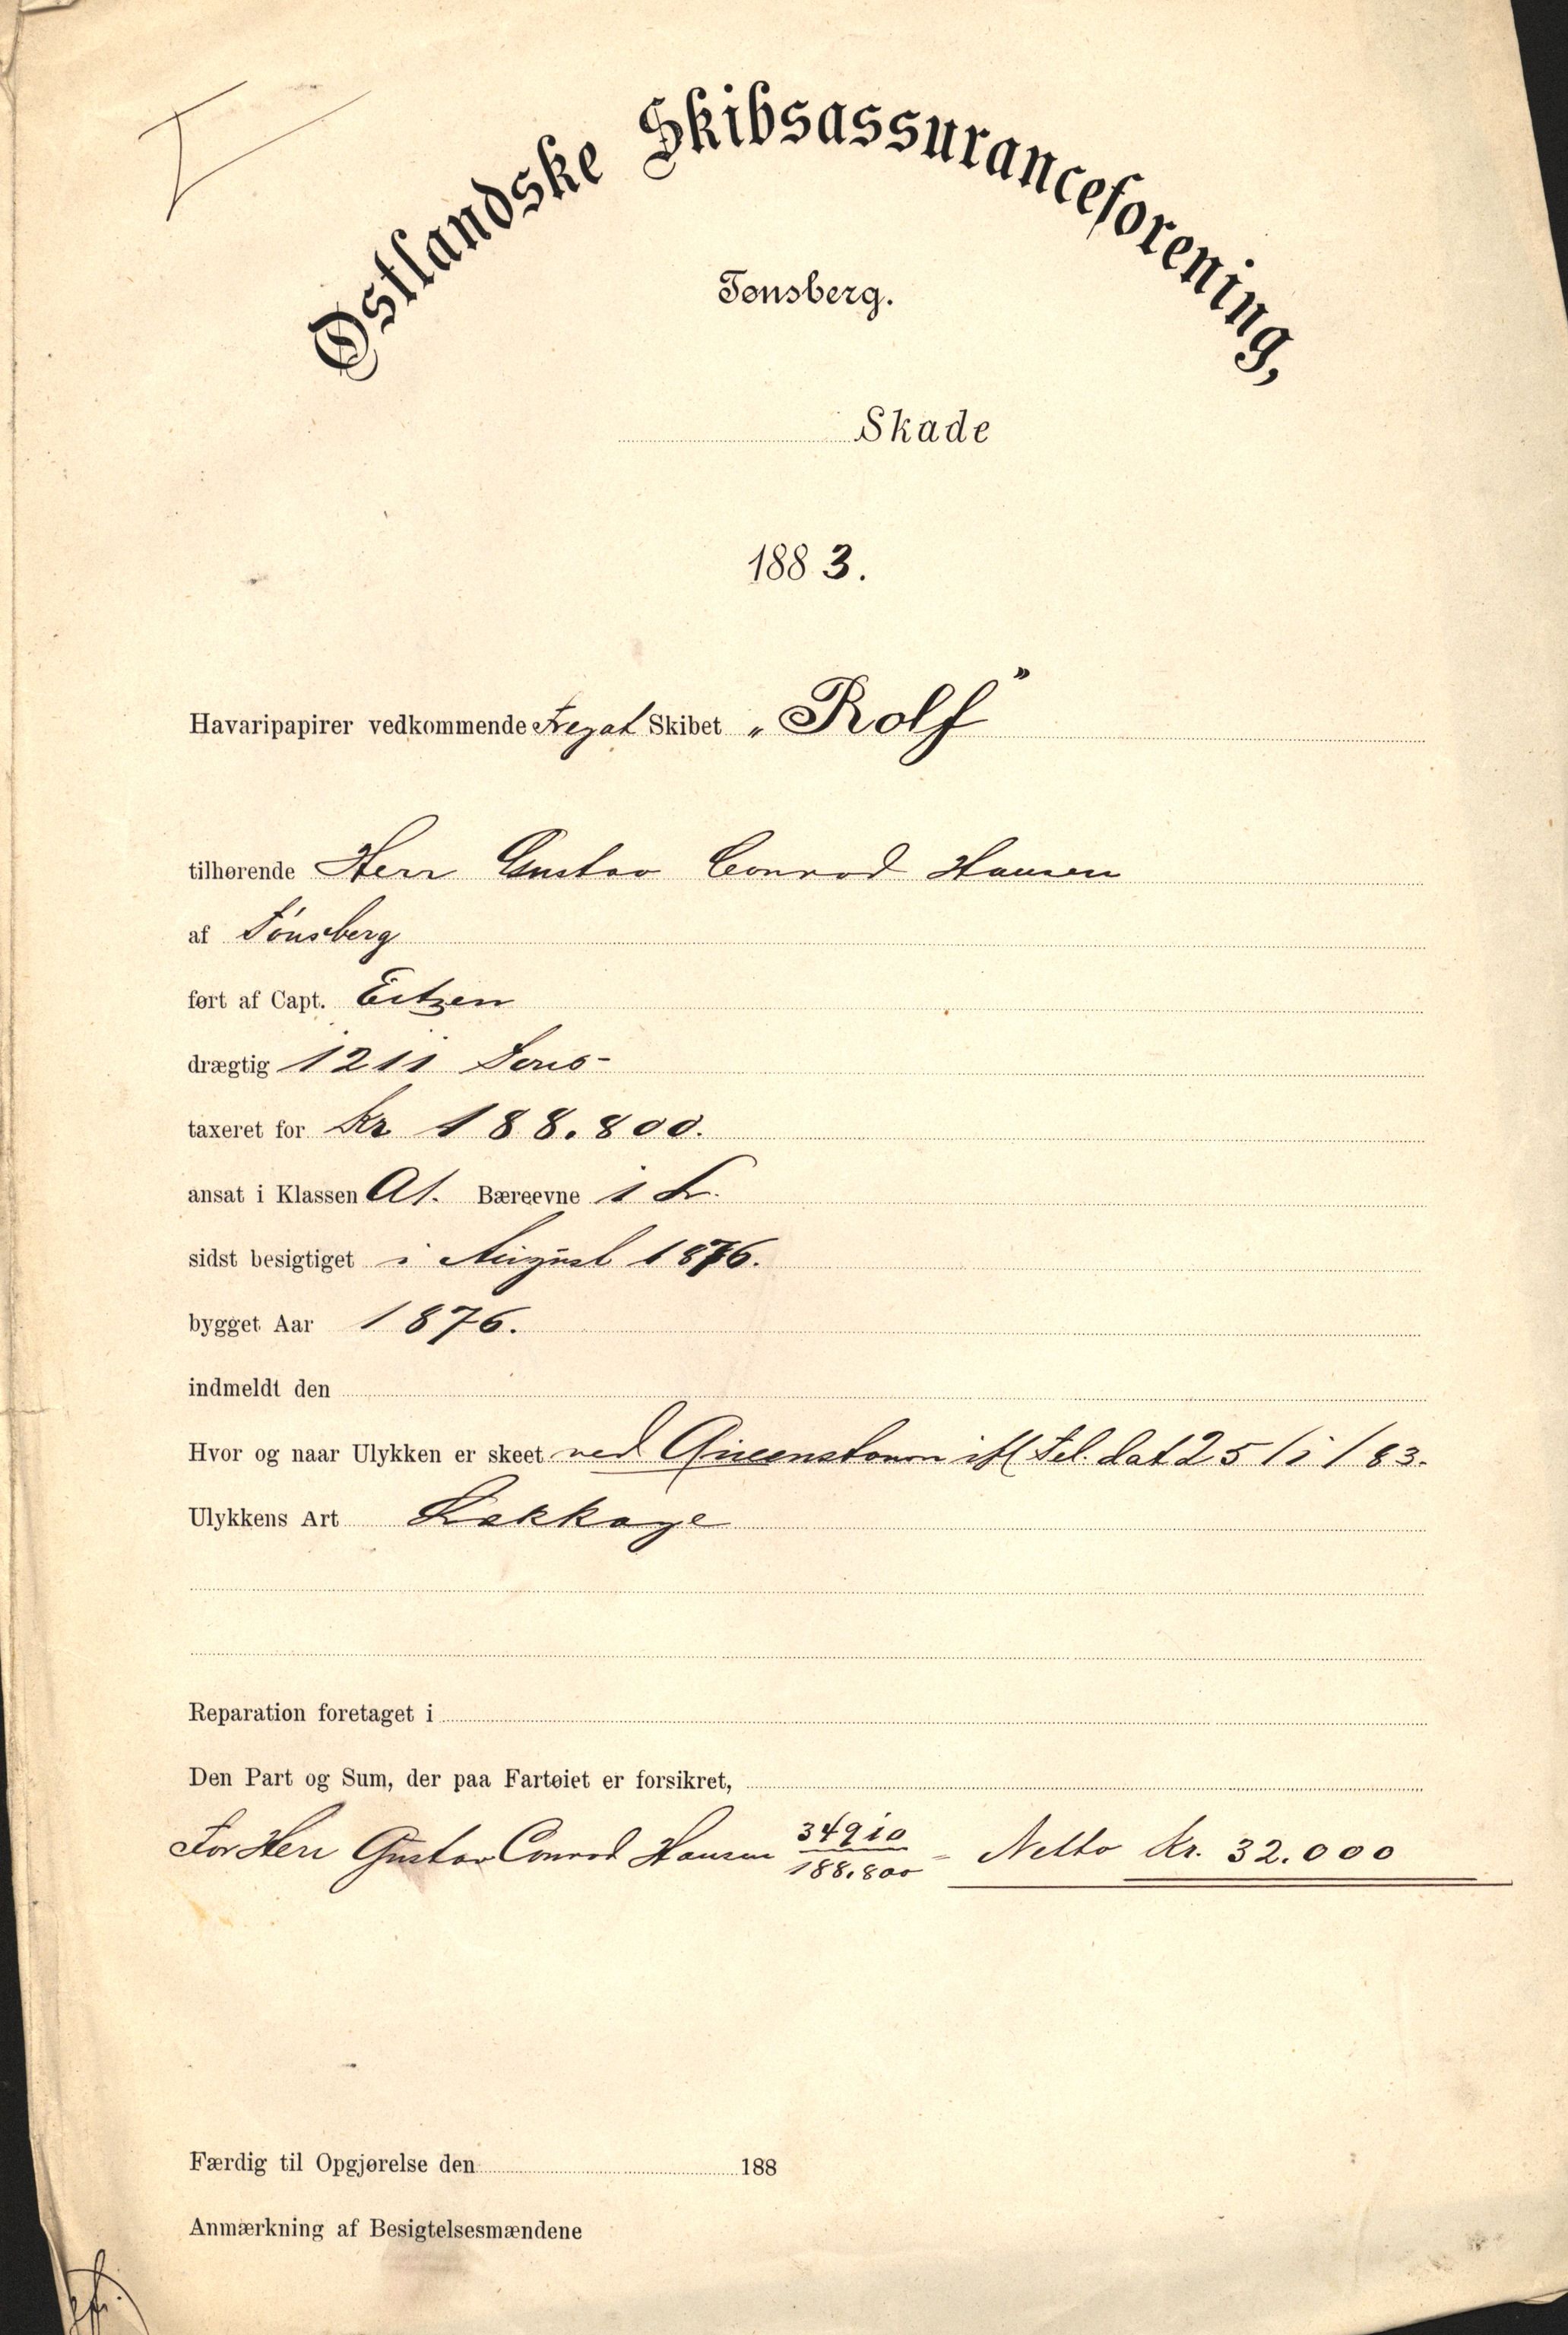 Østlandske Skibsassuranceforening,
Tønsberg.
Skade
1883.
Havaripapirer vedkommende Fregat Skibet „Rolf”
tilhørende Herr Gustav Conrad Hansen
af Tönsberg
ført af Capt. Eitzen
drægtig 1211 Tons
taxeret for Kr 188.800.
ansat i Klassen A1. Bæreevne 1
sidst besigtiget i August 1876.
bygget Aar 1876.
indmeldt den
Hvor og naar Ulykken er skeet ved Queenstown ifl Tel. dat 25/1/83.
Ulykkens Art Lækkage
Reparation foretaget i
Den Part og Sum, der paa Fartøiet er forsikret,
For Herr Gustav Conrad Hansen 34910/188.800 = Netto Kr. 32.000
Færdig til Opgjørelse den 188
Anmærkning af Besigtelsesmændene